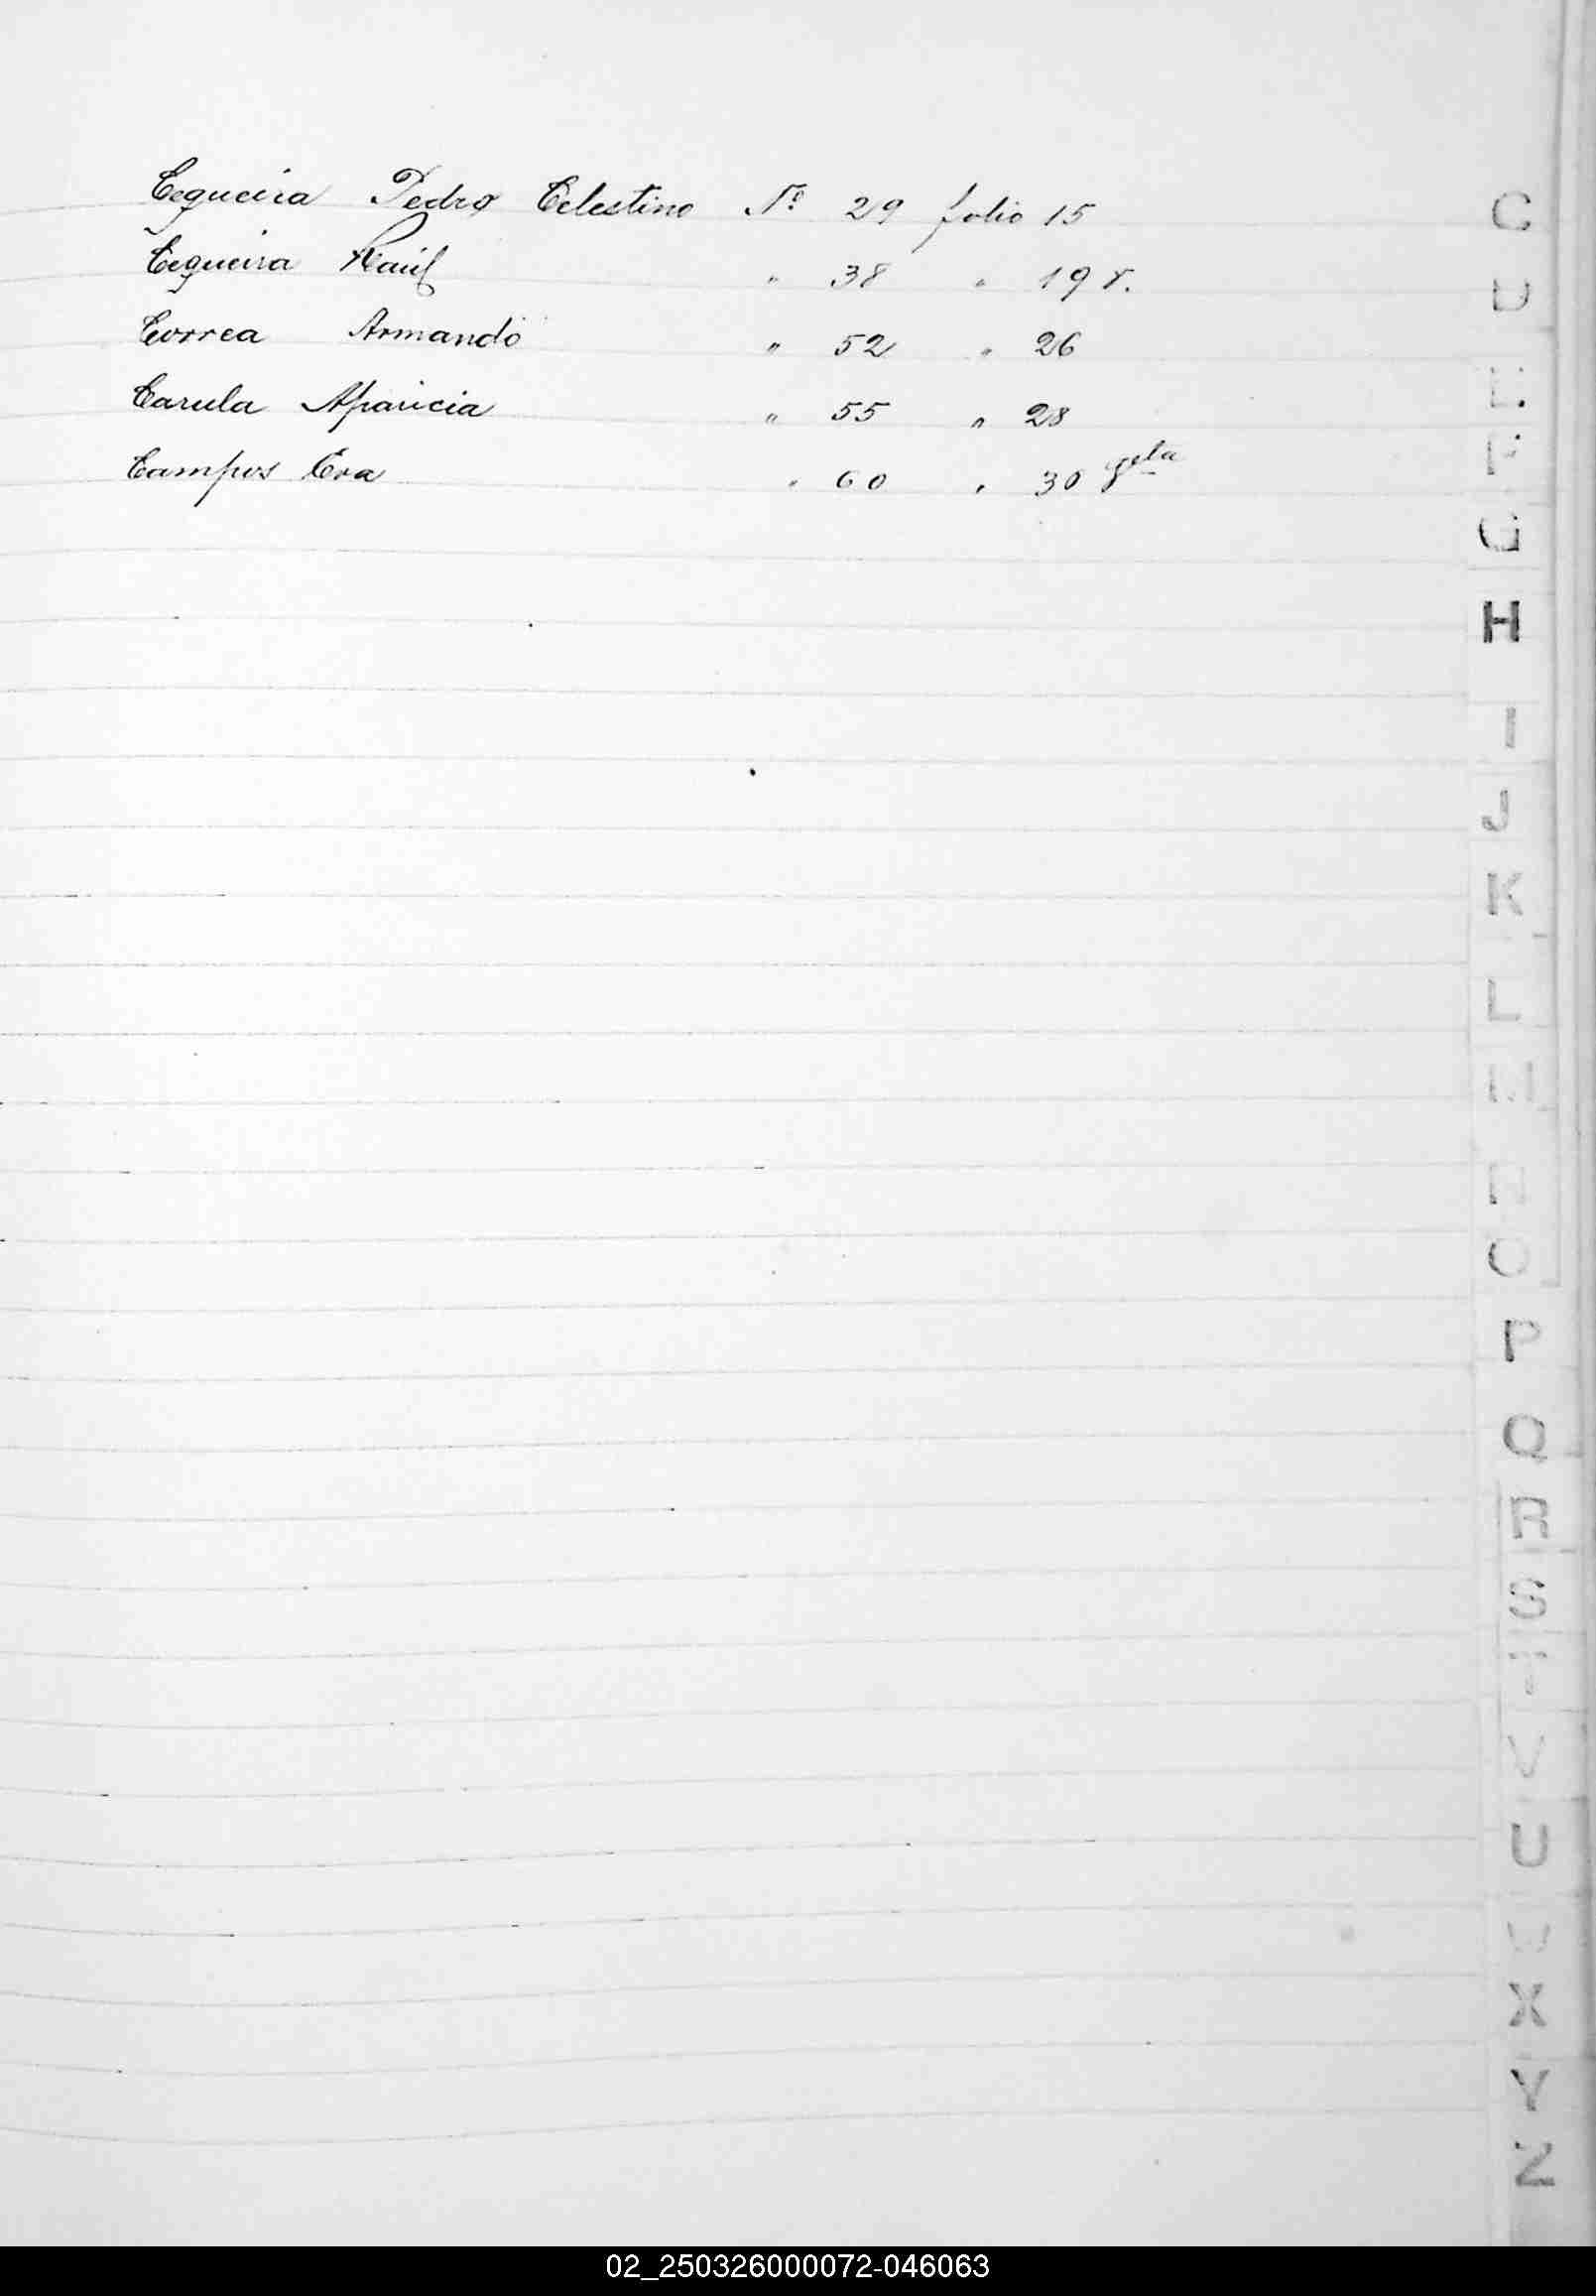 Cequeira Pedro Celestino Nº 29 folio 15
Cequeira Raúl " 38 " 19 v.
Correa Armando " 52 " 26
Carula Aparicia " 55 " 28
Campos Eva " 60 " 30 vta
C
D
E
F
G
H
I
J
K
L
M
N
O
P
Q
R
S
T
V
U
W
X
Y
Z
02_250326000072-046063